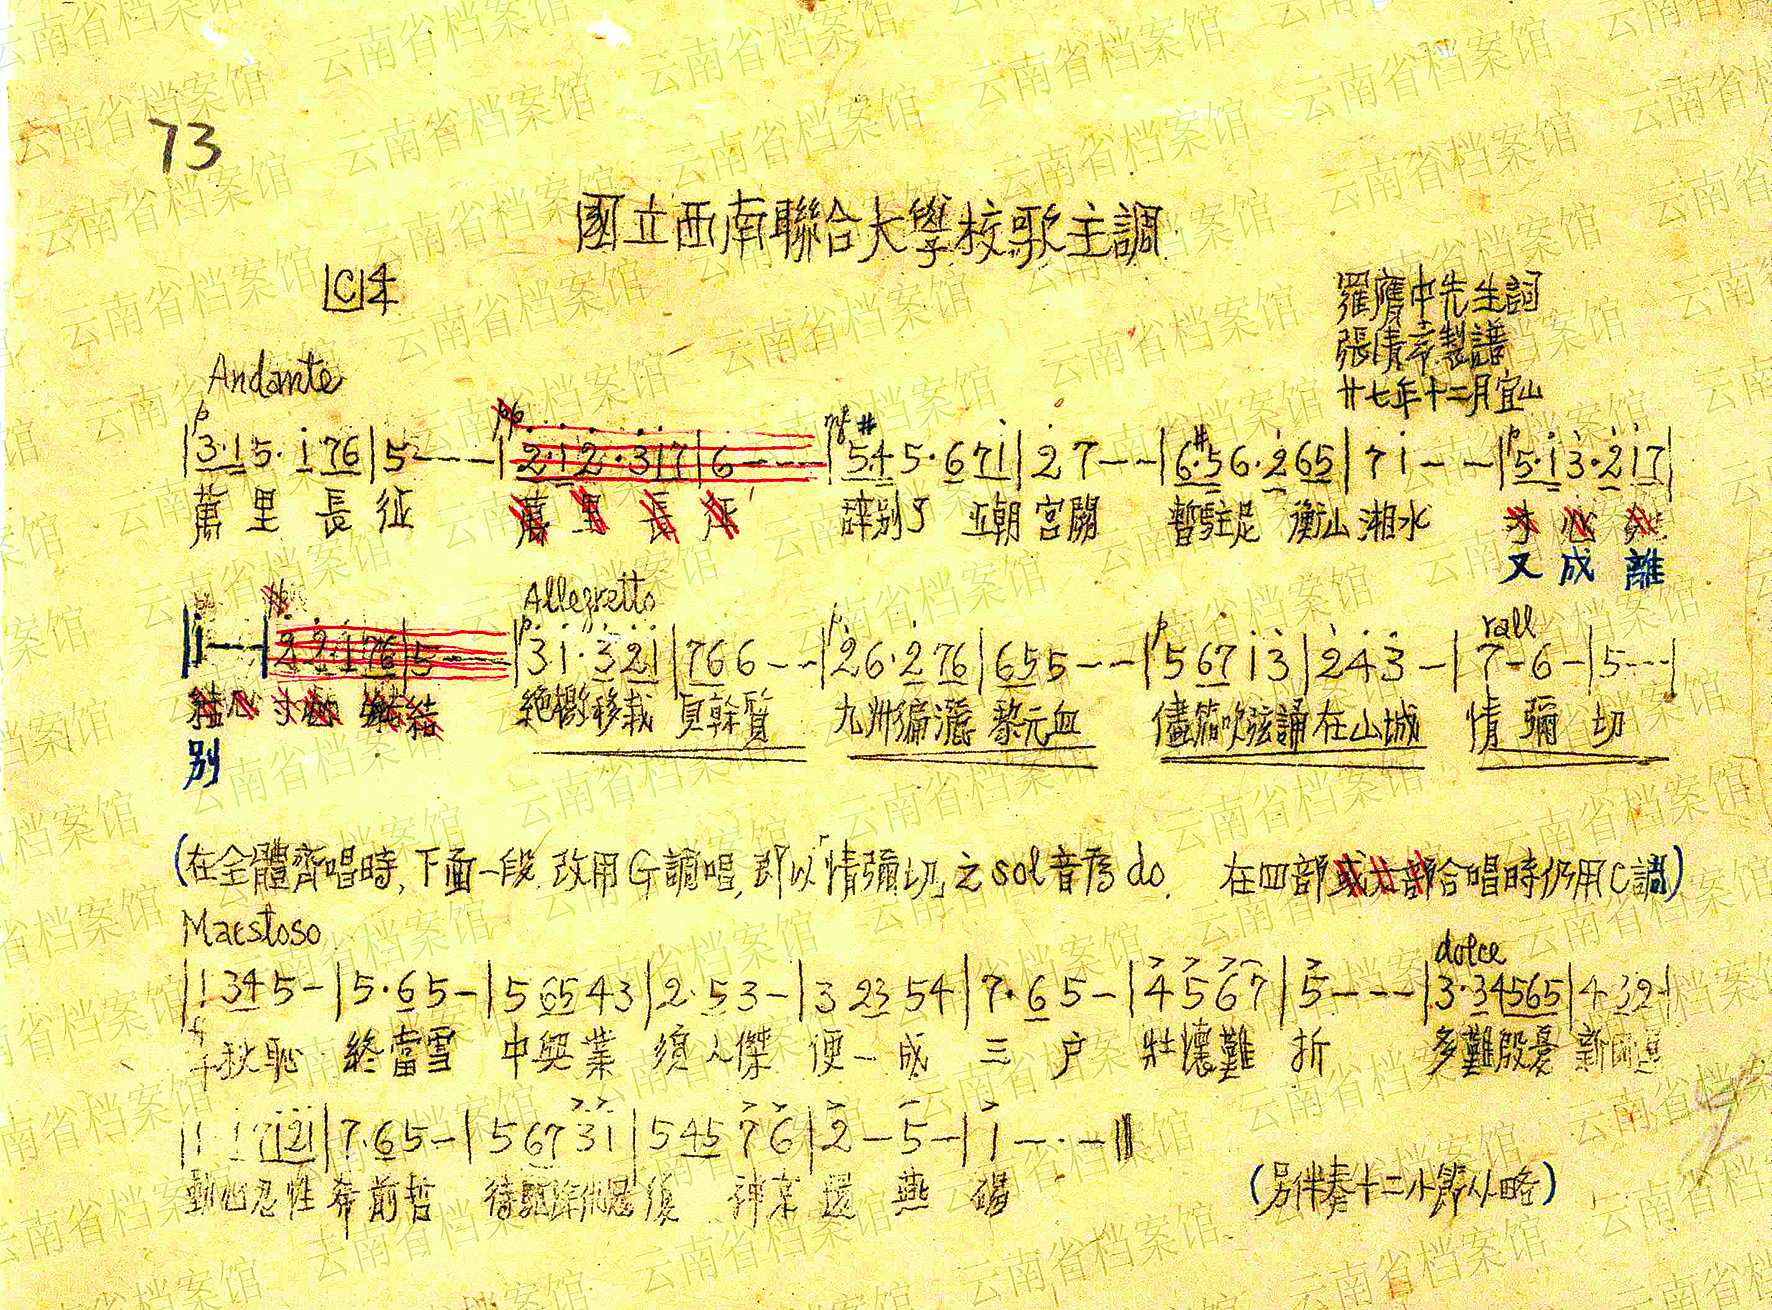 73
國立西南聯合大學校歌主調
C 4
羅膺中先生詞
張清常製譜
廿七年十二月宜山
Andante
p pp mf p
|3·1 5· 1 76|5---|2·1 2·317|6---|54 5·671|27--|6·5 6·2 65|71--|5·1 3·2 17|
萬里長征 萬里長征 辭別了 五朝宮闕 暫駐足 衡山湘水
又成離
Allegretto
p rall
|1---|2 2·1 76|5---|31·3 21|766--|26·2 76|655--|5 67 13|243-|7-6-|5---|
絕徼移栽 貞幹質 九州徧灑 黎元血 儘笳吹弦誦在山城 情彌切
別
(在全體齊唱時,下面一段改用G調唱,即以「情彌切」之sol音為do. 在四部或廿部合唱時仍用C調)
Maestoso
dolce
|1 34 5-|5·65-|5 65 43|2·53-|3 23 54|7·65-|4567|5---|3·34565|4 32-|
f
千秋恥 終當雪 中興業 須人傑 便一成 三戶 壯懷難折 多難殷憂 新國運
|1 1 7121|7·65-|5 67 31|5 45 76|2-5-|1---||
動心忍性 希前哲 待驅除仇寇 復神京 還燕碣
(另伴奏十二小節從略)
云南省档案馆